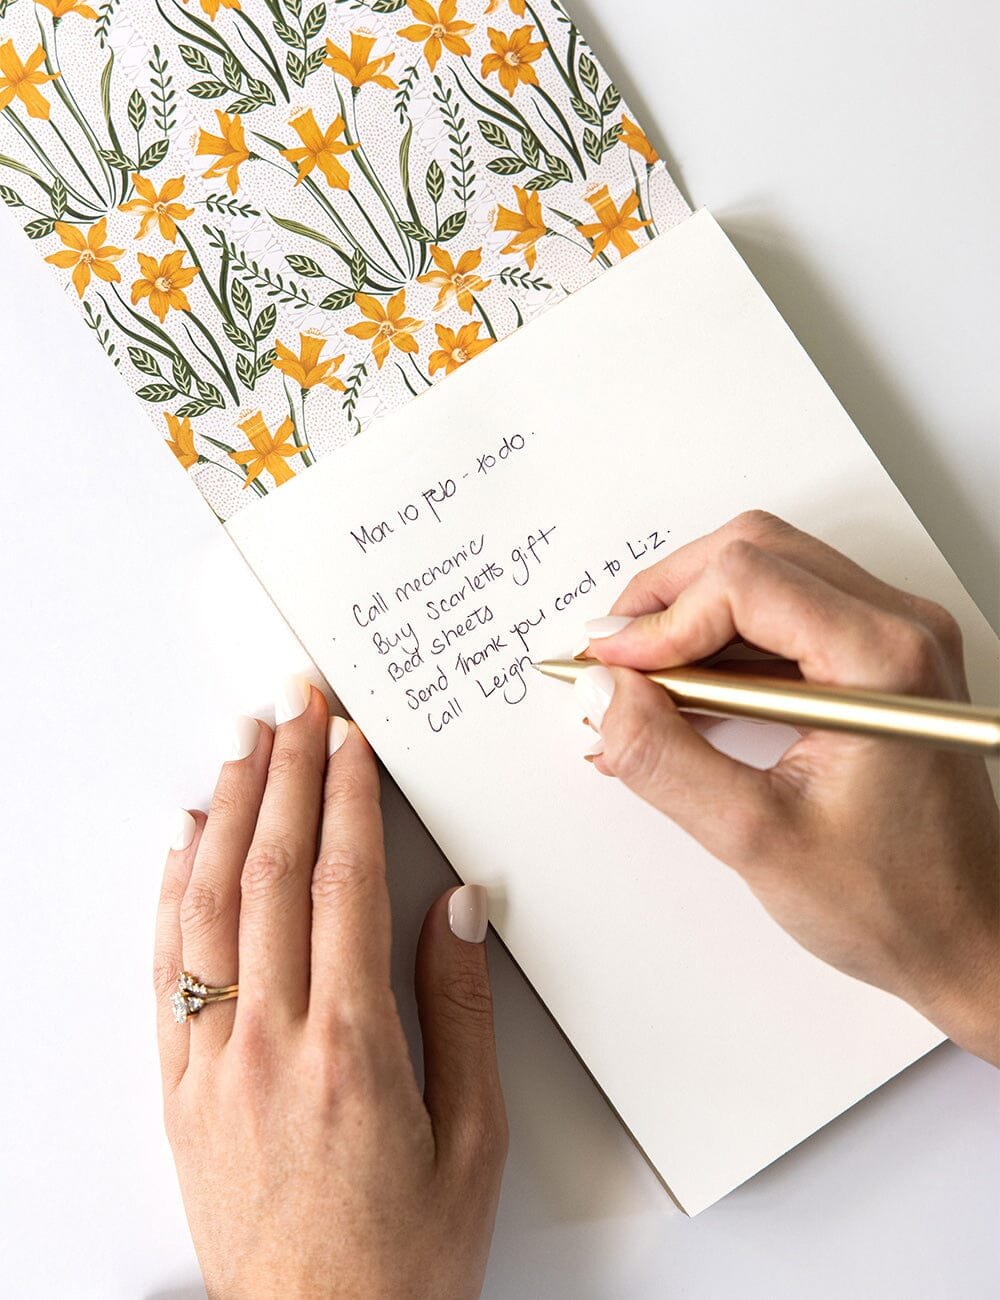 Mon 10 Feb - to do.
Call mechanic
· Buy Scarletts gift
· Bed sheets
· Send Thank you card to Liz.
· Call Leigh